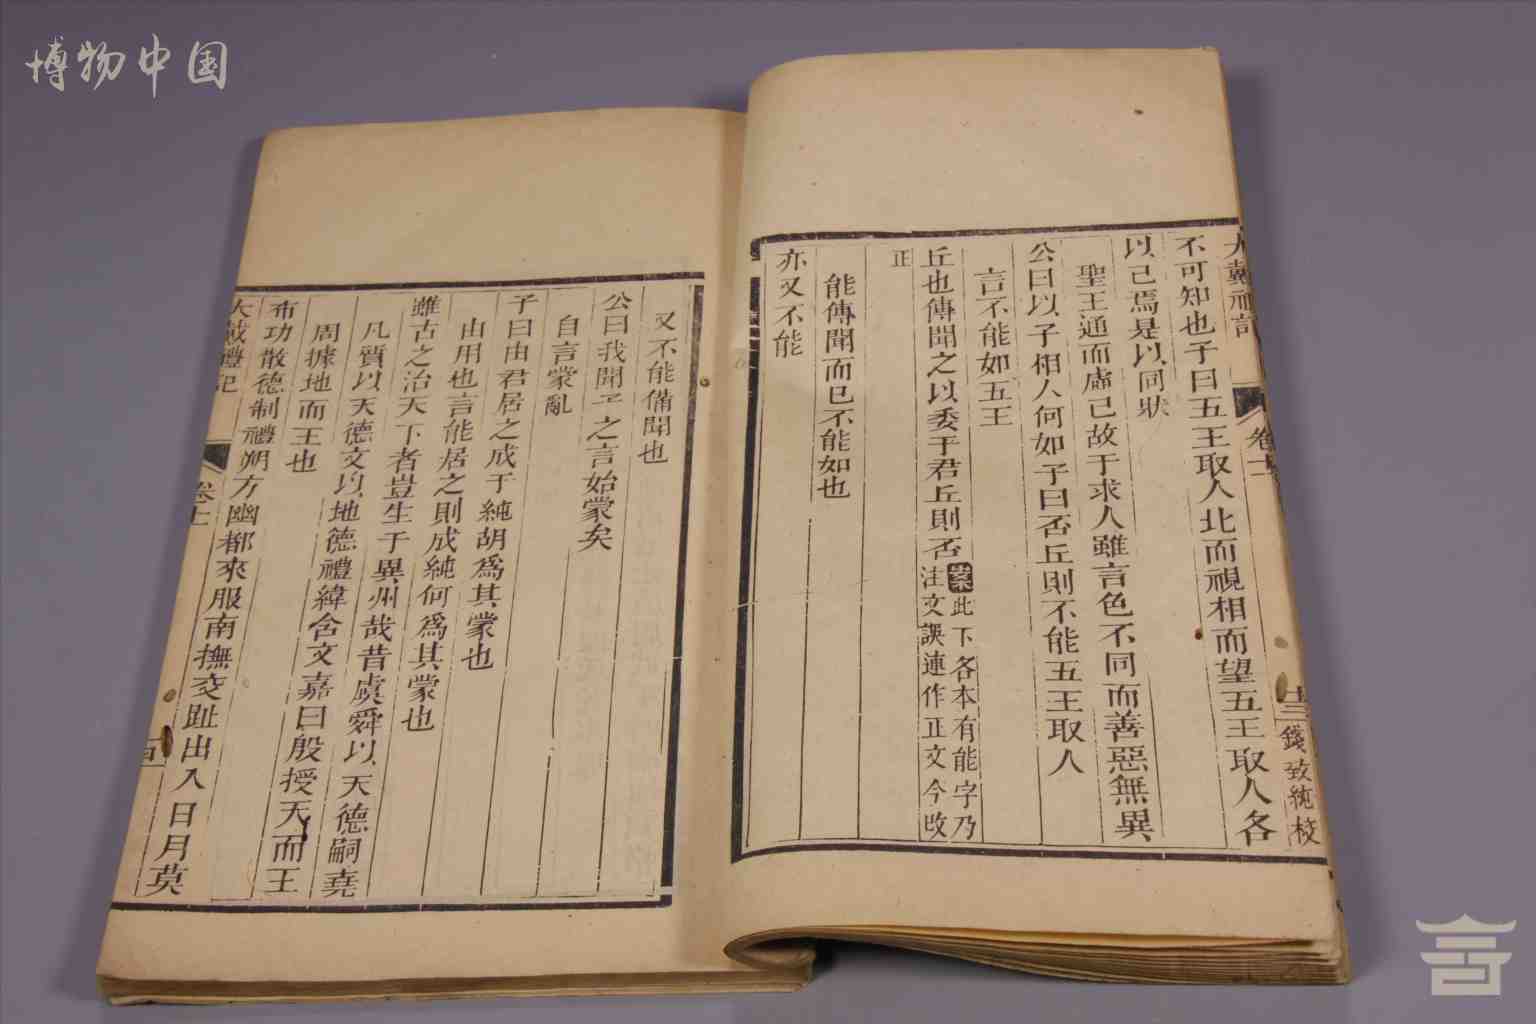 博物中国
大戴禮記
卷十一
十三
錢致純校
不可知也子曰五王取人北而視相而望五王取人各
以己焉是以同狀
聖王通而虛己故于求人雖言色不同而善惡無異
公曰以子相人何如子曰否丘則不能五王取人
言不能如五王
丘也傳聞之以委于君丘則否案此下各本有能字乃
注文誤連作正文今改
正
能傳聞而已不能如也
亦又不能
又不能備聞也
公曰我聞子之言始蒙矣
自言蒙亂
子曰由君居之成于純胡為其蒙也
由用也言能居之則成純何為其蒙也
雖古之治天下者豈生于異州哉昔虞舜以天德嗣堯
凡質以天德文以地德禮緯含文嘉曰殷授天而王
周據地而王也
布功散德制禮朔方幽都來服南撫交趾出入日月莫
大戴禮記
卷十一